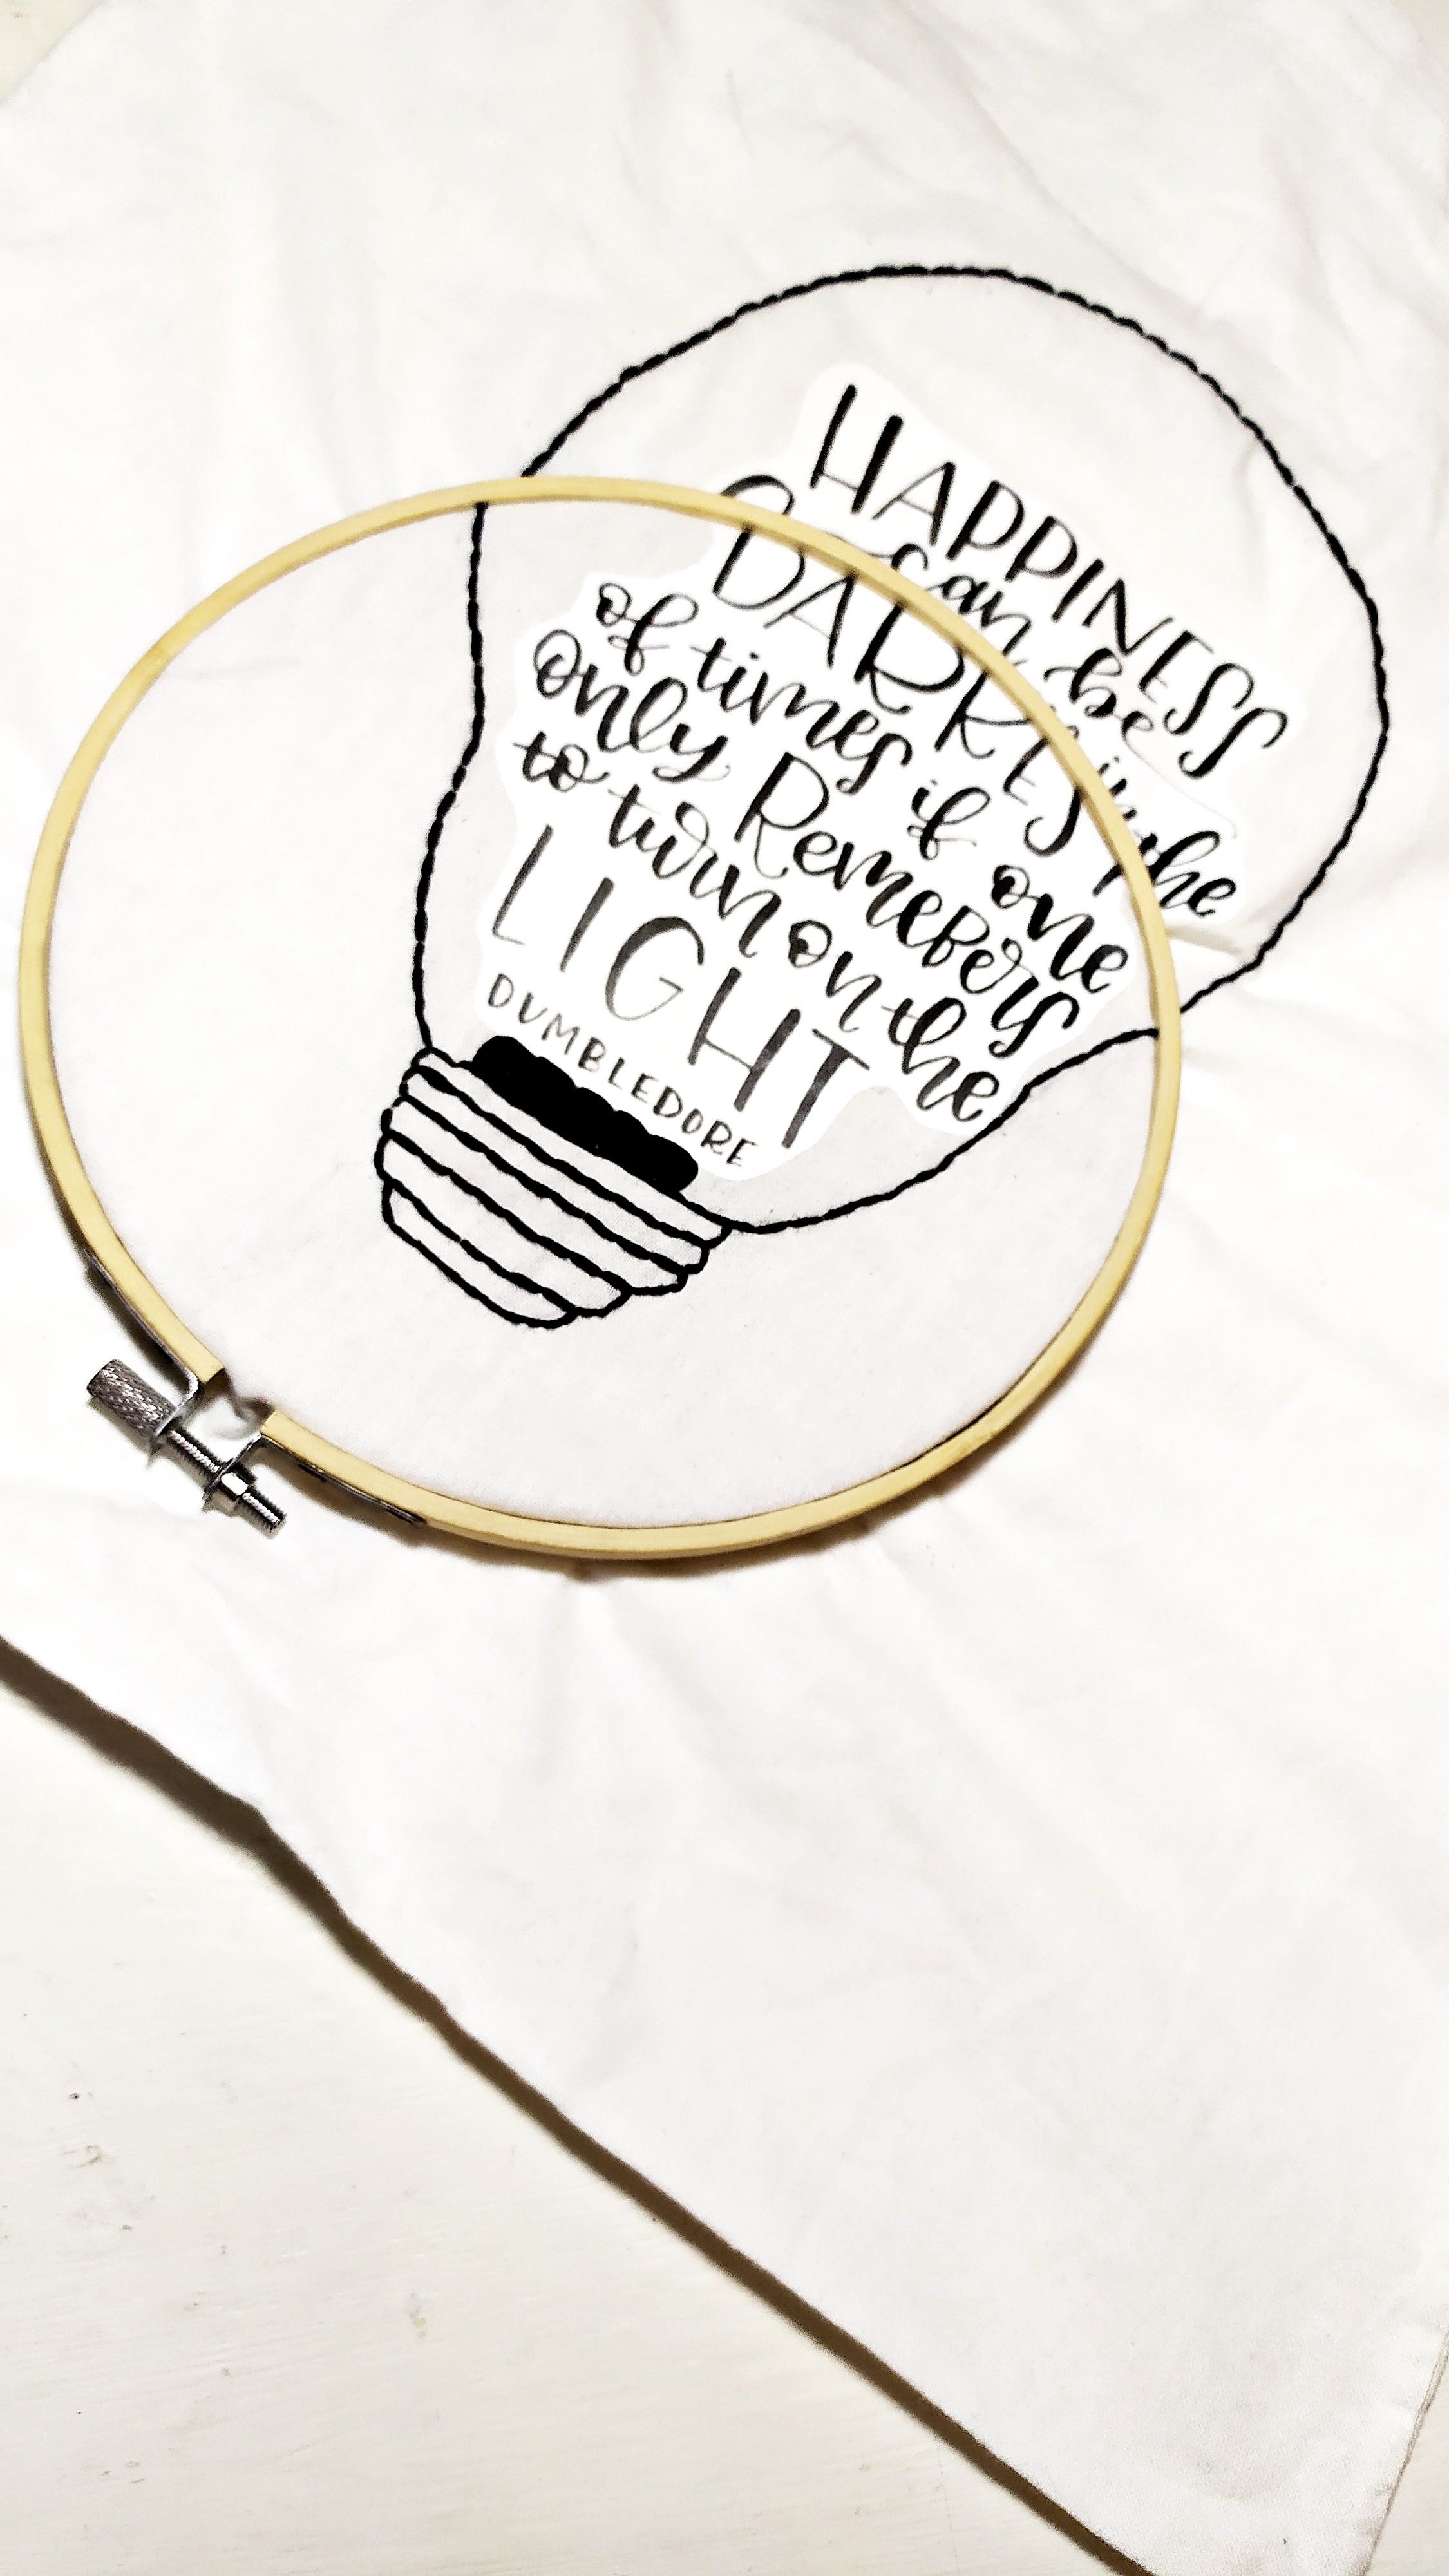 HAPPINESS
can be
in the
DARKEST
of times if one
only RemeBers
to turn on the
LIGHT
DUMBLEDORE